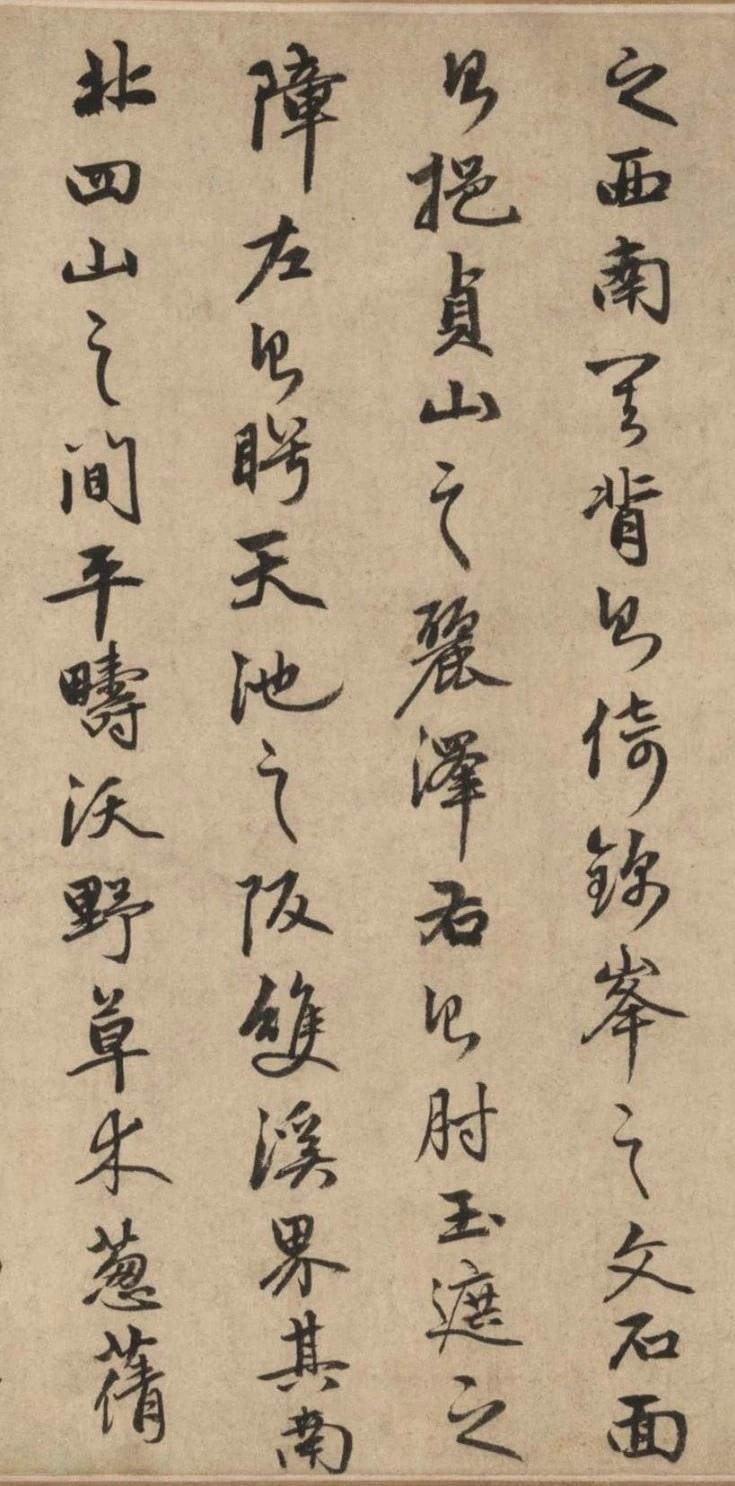 之西南其背則倚錦峯之文石面
則挹貞山之麗澤右則肘玉遮之
障左則盻天池之阪雙溪界其南
北四山之間平疇沃野草木葱蒨